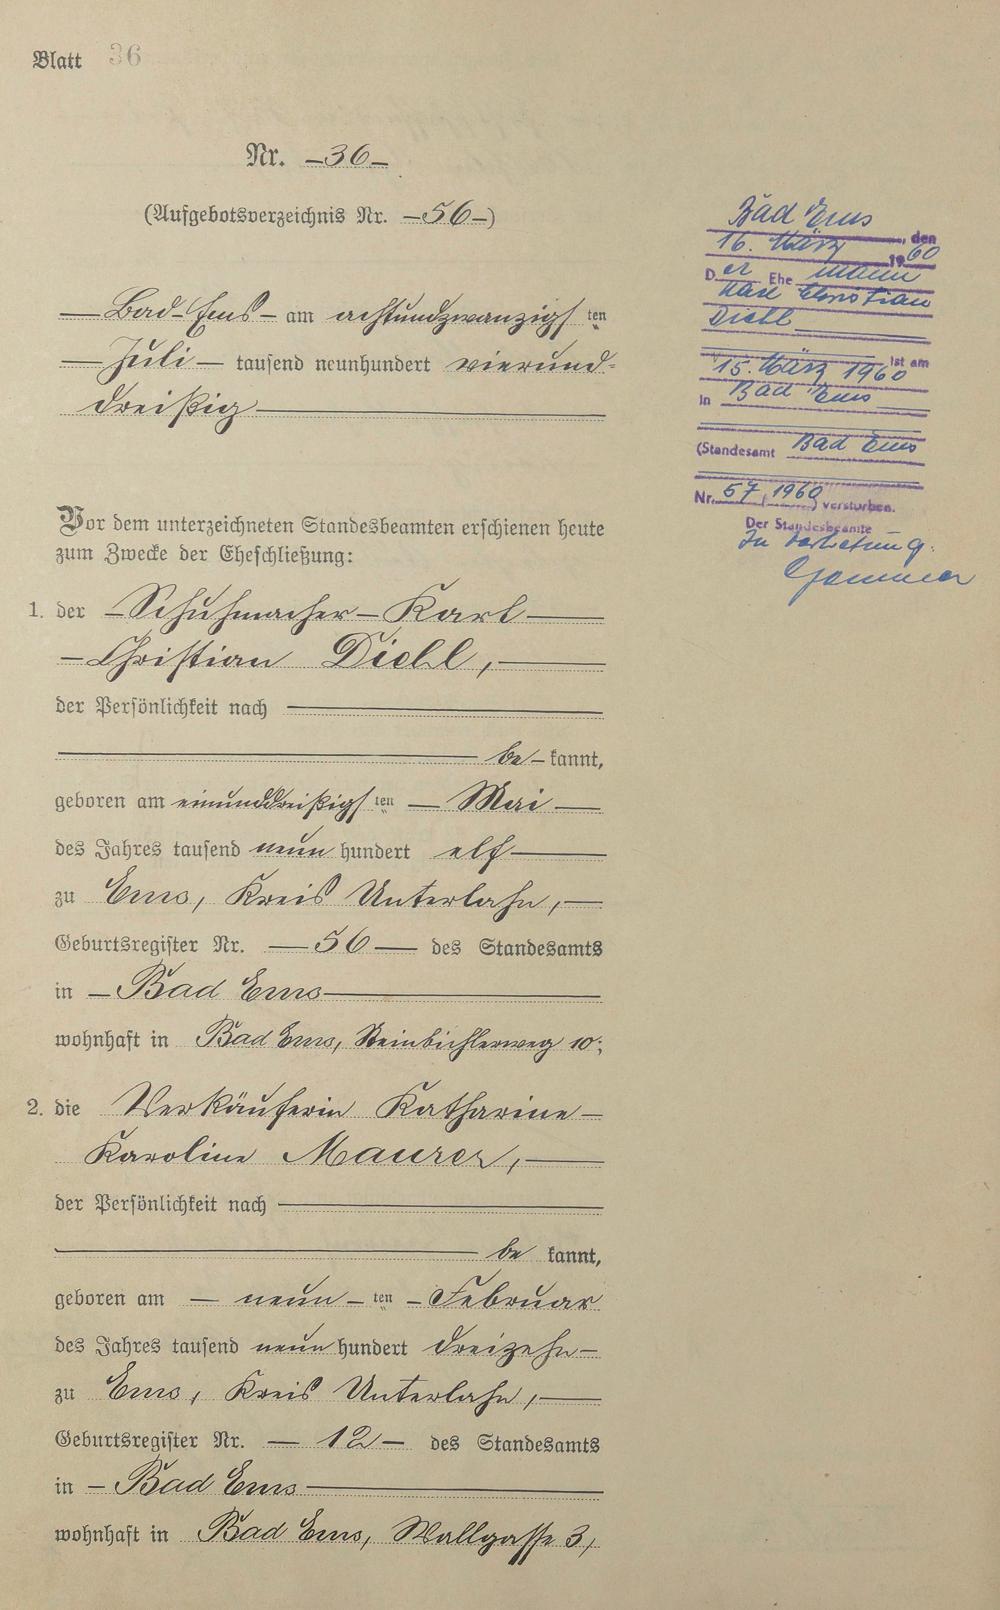 Blatt 36
Nr. –36–
(Aufgebotsverzeichnis Nr. –56–)
Bad-Ems – am achtundzwanzigs ten
Juli – tausend neunhundert vierund-
dreißig
Vor dem unterzeichneten Standesbeamten erschienen heute
zum Zwecke der Eheschließung:
1. der – Schuhmacher – Karl
– Christian Diehl,
der Persönlichkeit nach
be – kannt,
geboren am einunddreißigs ten – Mai –
des Jahres tausend neun hundert elf
zu Ems, Kreis Unterlahn,
Geburtsregister Nr. – 56 – des Standesamts
in – Bad Ems
wohnhaft in Bad Ems, Steinbichlerweg 10;
2. die Verkäuferin Katharine –
Karoline Maurer,
der Persönlichkeit nach
be kannt,
geboren am – neun – ten – Februar
des Jahres tausend neun hundert dreizehn –
zu Ems, Kreis Unterlahn,
Geburtsregister Nr. – 12 – des Standesamts
in – Bad Ems
wohnhaft in Bad Ems, Wallgasse 3,
Bad Ems, den
16. März 1960
Der Ehemann
Karl Christian
Diehl
ist am
15. März 1960
in Bad Ems
(Standesamt Bad Ems
Nr. 57, 1960) verstorben.
Der Standesbeamte
In Vertretung: